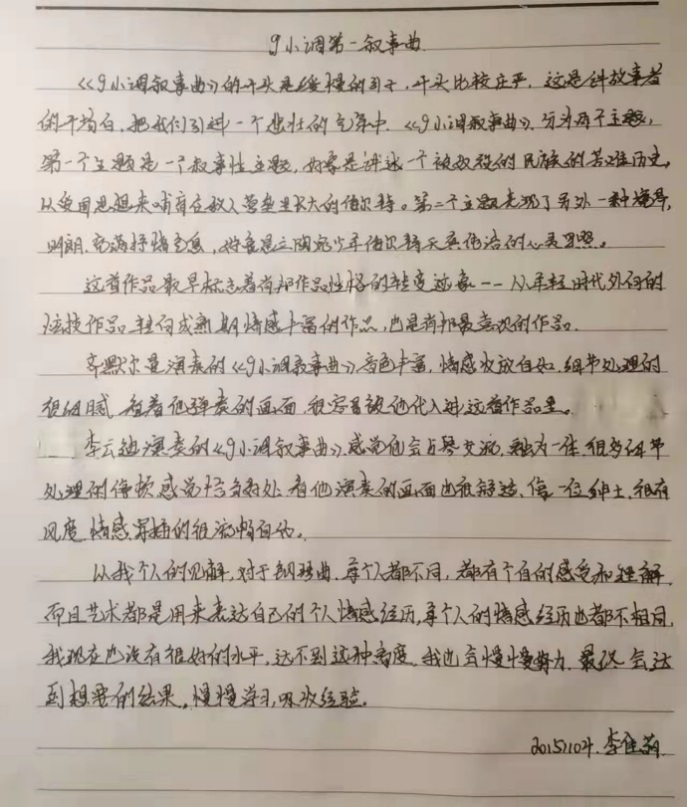 g小调第一叙事曲
《g小调叙事曲》的开头是缓慢的引子,开头比较庄严,这是讲故事者
的开场白,把我们引进一个悲壮的气氛中,《g小调叙事曲》,分为两个主题,
第一个主题是一个叙事性主题,好象是讲述一个被奴役的民族的苦难历史,
以爱国思想来哺育在敌人营垒里长大的伯尔特。第二个主题表现了另外一种境界,
明朗,充满抒情气息,好象是立陶宛少年伯尔特天真传洽的心灵
这首作品最早标志着肖邦作品性格的转变迹象--从年轻时代外向的
炫技作品转向成熟期情感丰富的作品,也是肖邦最喜欢的作品.
齐默尔曼演奏的《g小调叙事曲》音色丰富,情感收放自如,细节处理的
很细腻,看着他弹奏的画面,很容易被他代入进这首作品里。
李云迪演奏的《g小调叙事曲》,感觉他会与琴交流,融为一体,很多细节
处理的停顿感觉恰到好处,看他演奏的画面也很舒适,像一位绅士,很有
风度,情感宣泄的很流畅自然。
以我个人的见解,对于钢琴曲,每个人都不同,都有个自的感受和理解,
而且艺术都是用来表达自己的个人情感经历,每个人的情感经历也都不相同,
我现在也没有很好的水平,达不到这种高度,我也会慢慢努力,最后会达
到想要的结果,慢慢学习,吸收经验.
20151104. 李佳